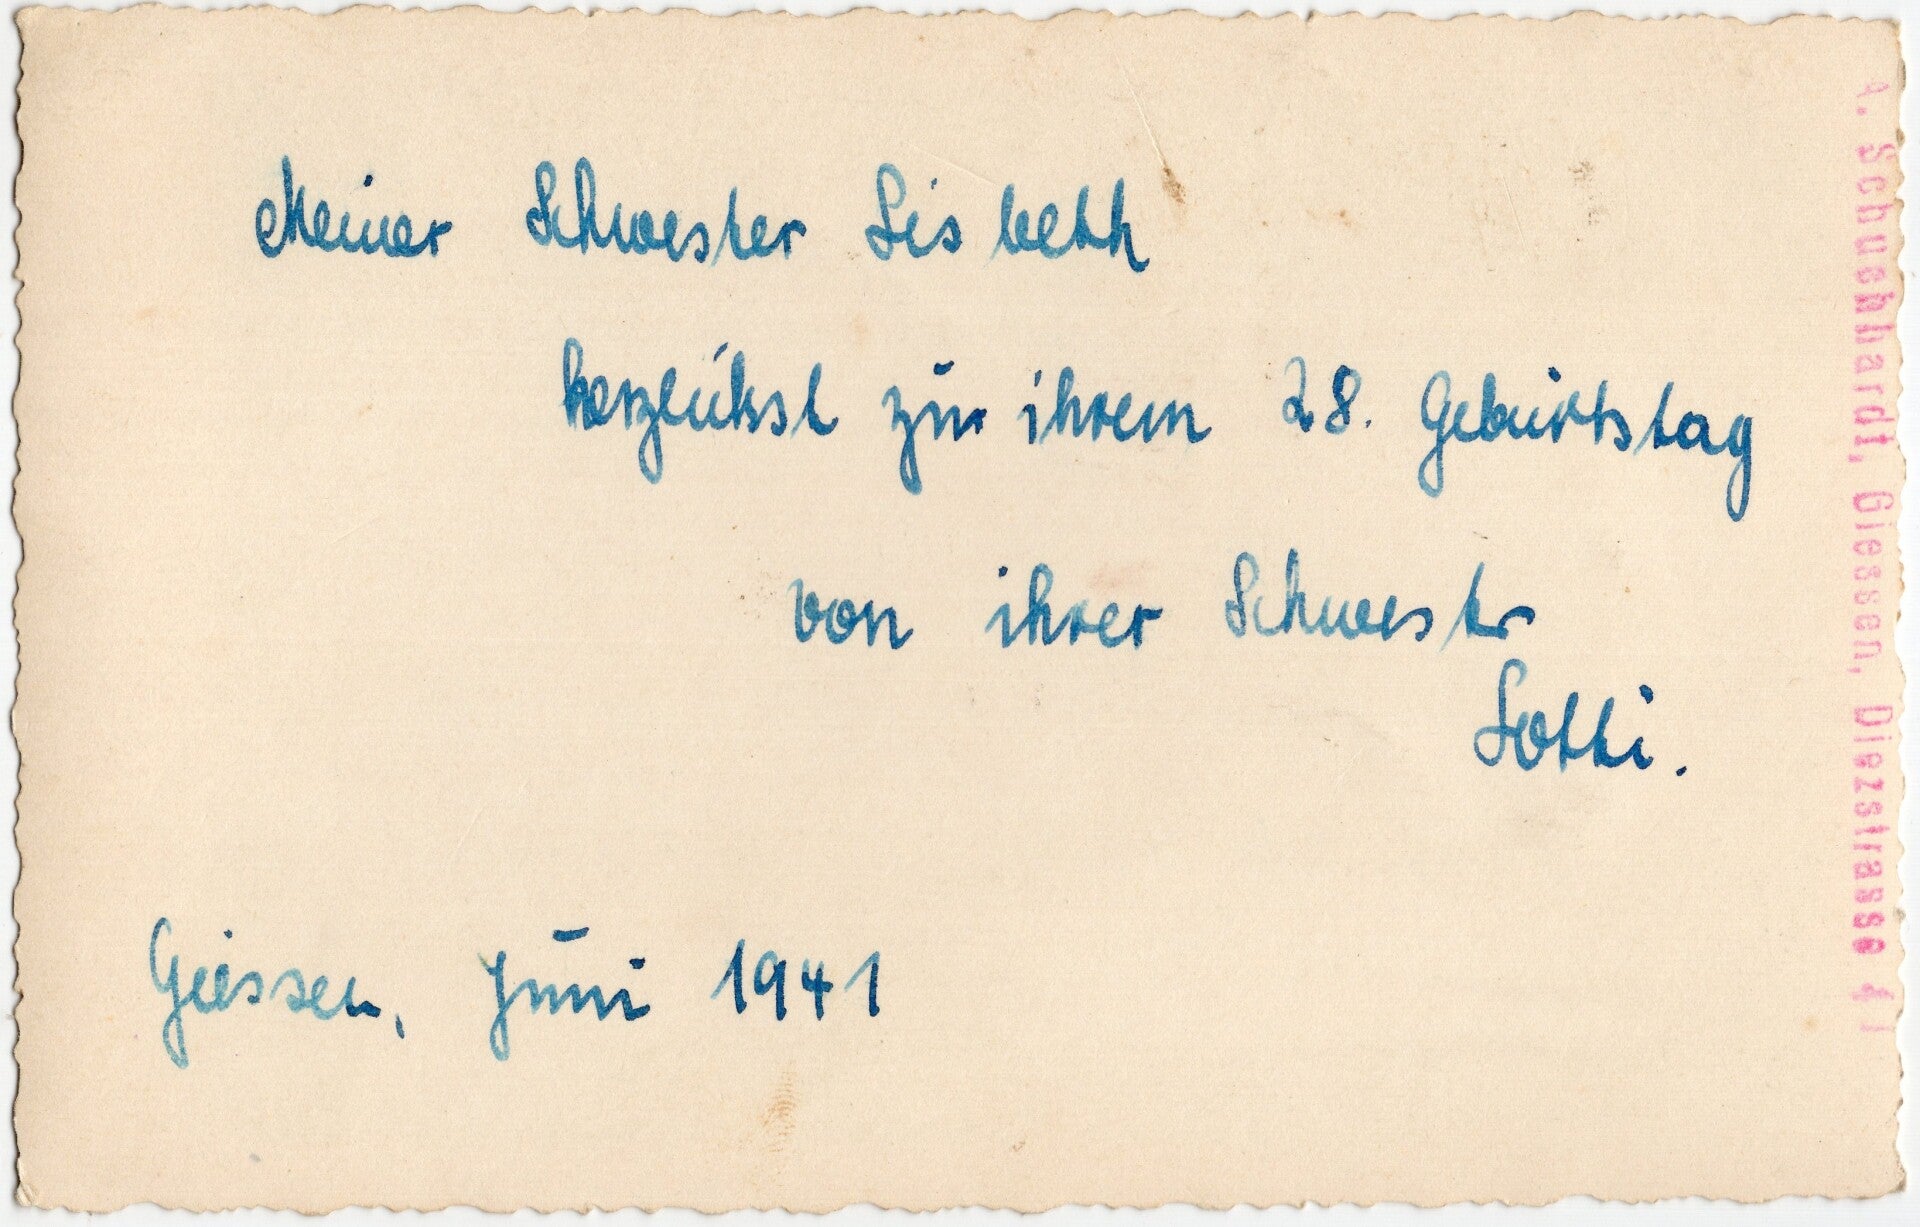 Meiner Schwester Lisbeth
herzlichst zu ihrem 28. Geburtstag
von ihrer Schwester
Lotti.
Giessen, Juni 1941
A. Schuchhardt, Giessen, Diezstrasse 4 I